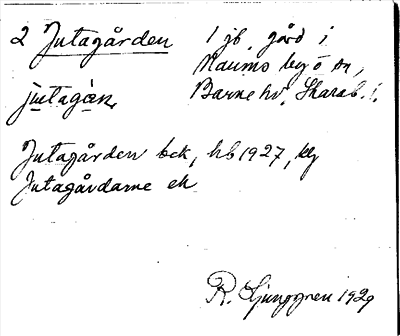 2 Jutagården 1 jb. gård i
Naums by o sn,
jutagán, Barne hd, Skarab. l.
Jutagården bck, hb 1927, kg
Jutagårdarne ek
R. Ljunggren 1929